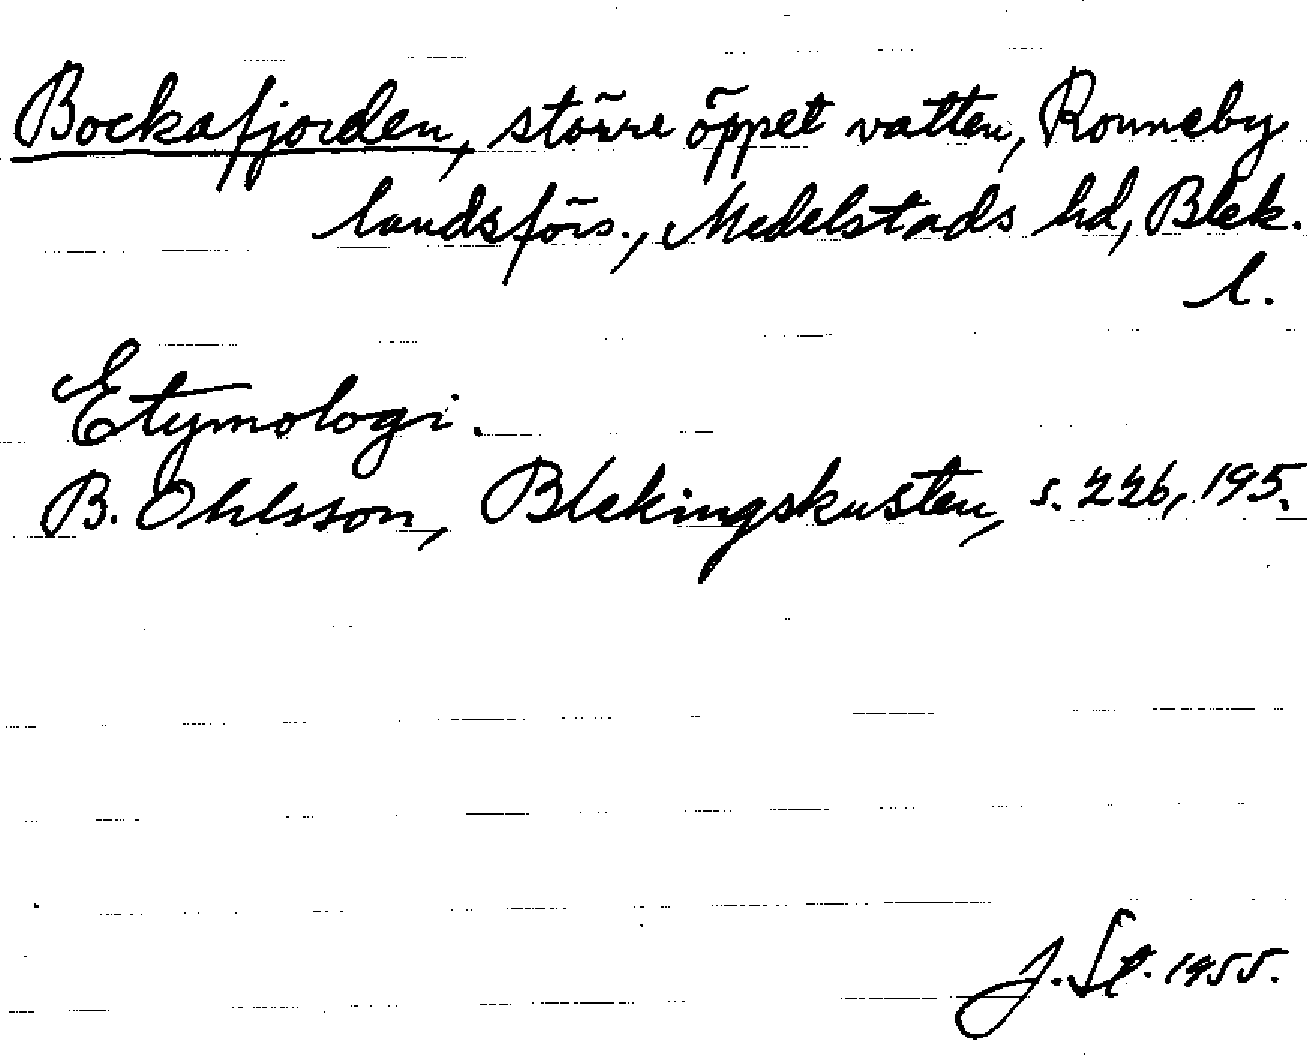 Bockafjorden, större öppet vatten, Ronneby
landsförs., Medelstads hd, Blek.
l.
Etymologi.
B. Ohlsson, Blekingskusten, s. 226, 195.
J. St. 1955.